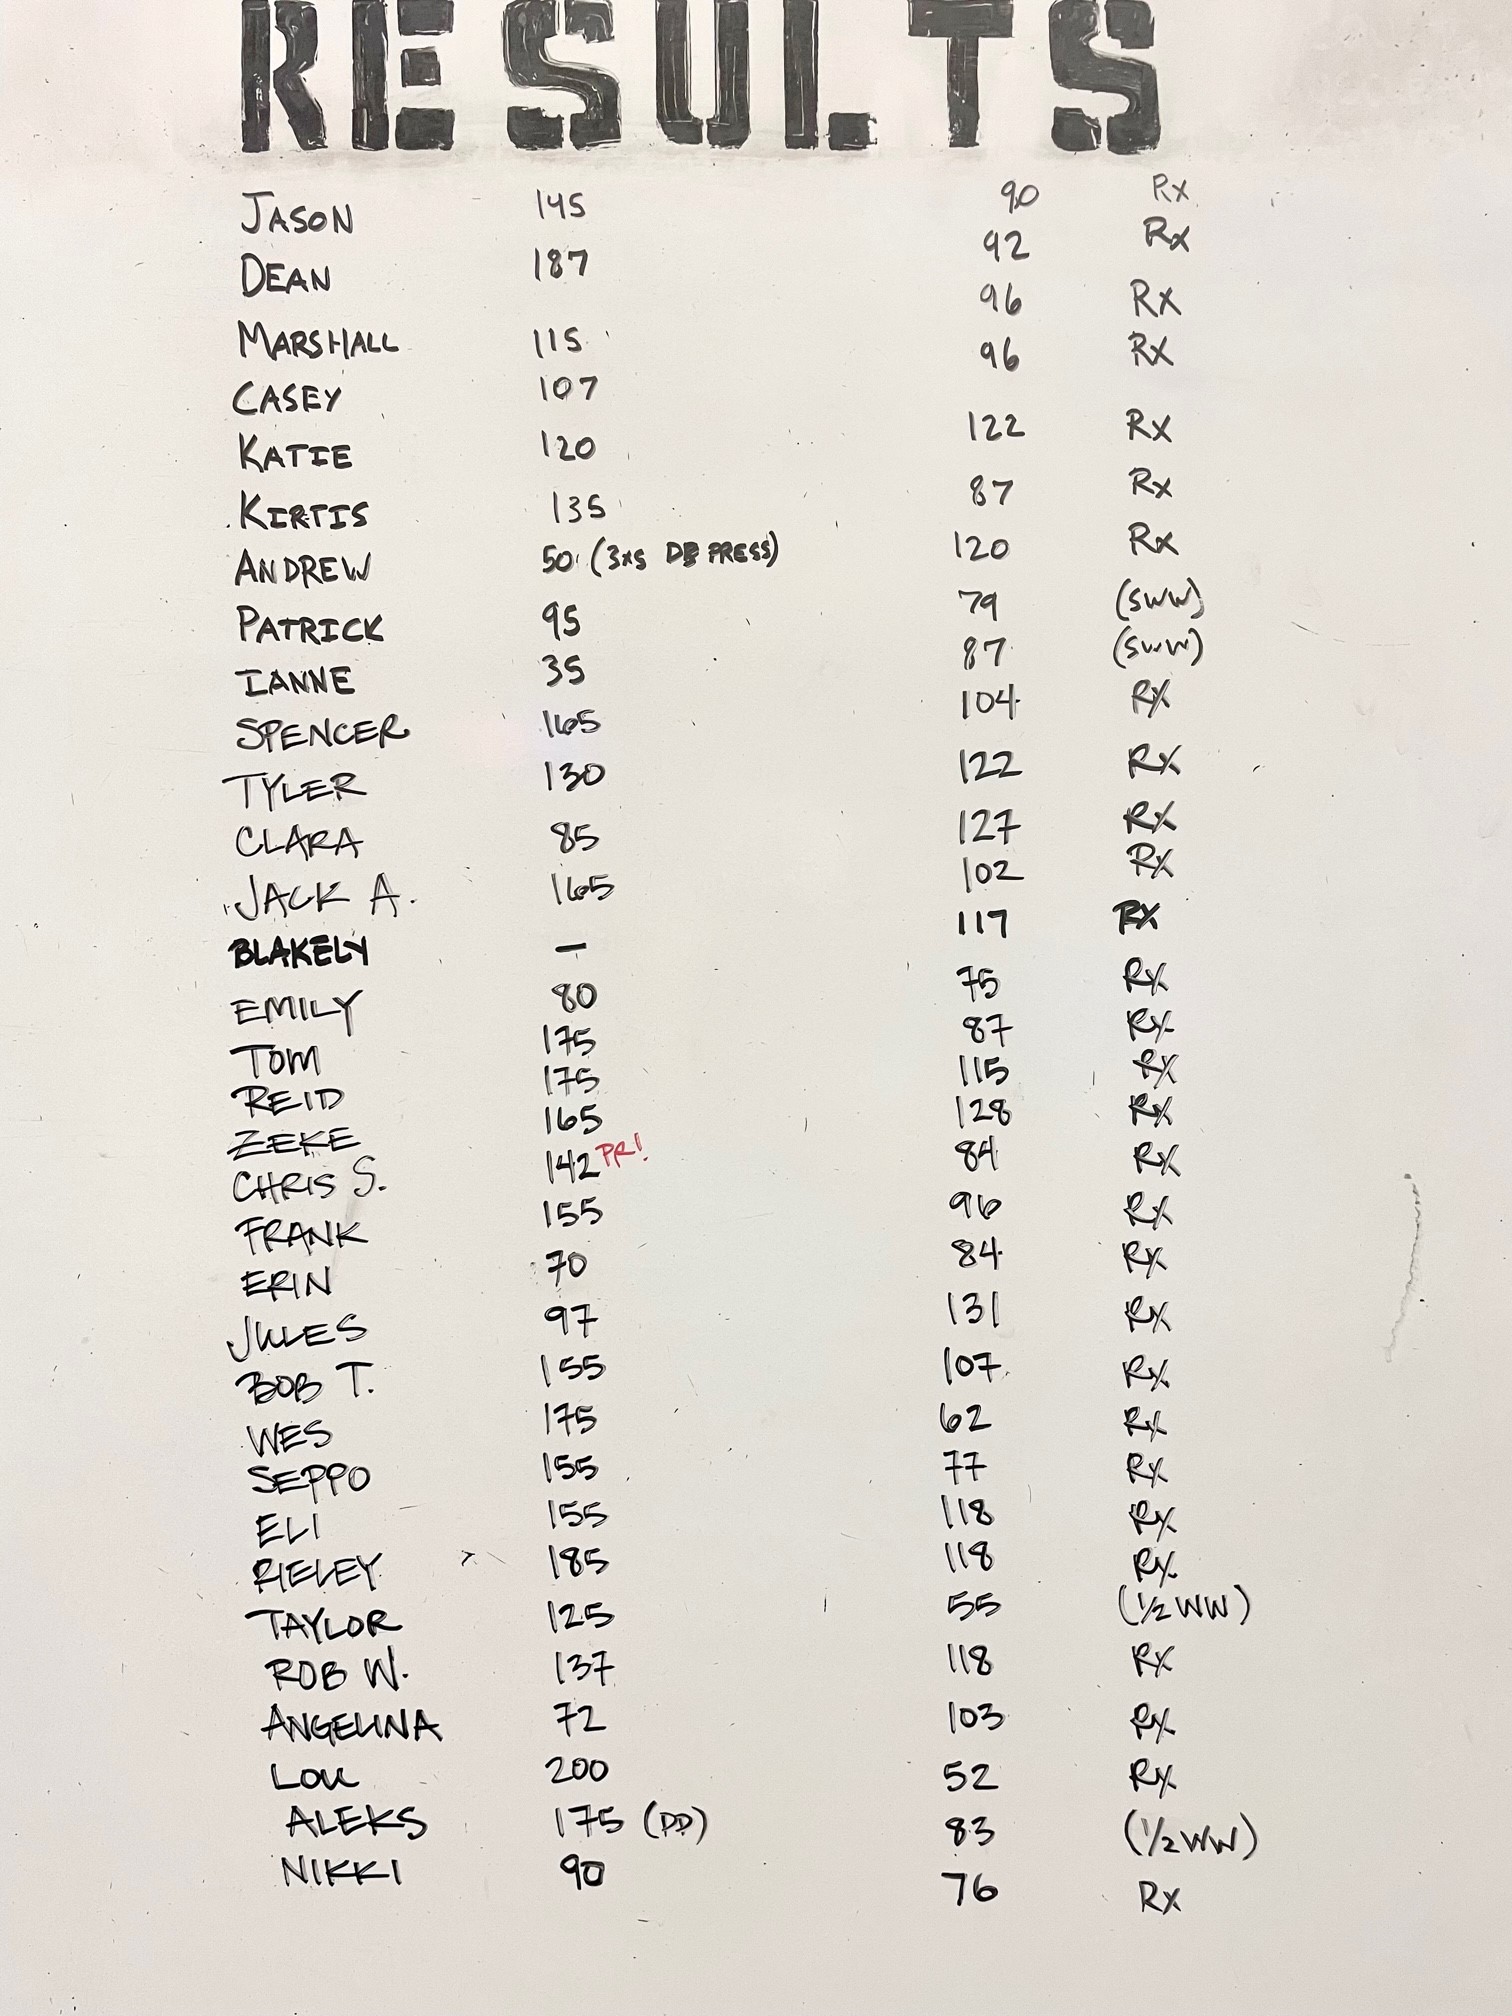 RESULTS
JASON 145 90 Rx
DEAN 187 92 Rx
MARSHALL 115 96 Rx
CASEY 107 96 Rx
KATIE 120 122 Rx
KIRTIS 135 87 Rx
ANDREW 50 (3x5 DB PRESS) 120 Rx
PATRICK 95 79 (SWW)
IANNE 35 87 (SWW)
SPENCER 165 104 Rx
TYLER 130 122 Rx
CLARA 85 127 Rx
JACK A. 165 102 Rx
BLAKELY — 117 Rx
EMILY 80 75 Rx
TOM 175 87 Rx
REID 175 115 Rx
ZEKE 165 128 Rx
CHRIS S. 142 PR! 84 Rx
FRANK 155 96 Rx
ERIN 70 84 Rx
JULES 97 131 Rx
BOB T. 155 107 Rx
WES 175 62 Rx
SEPPO 155 77 Rx
ELI 155 118 Rx
RIELEY 185 118 Rx
TAYLOR 125 55 (1/2 WW)
ROB W. 137 118 Rx
ANGELINA 72 103 Rx
LOU 200 52 Rx
ALEKS 175 (DD) 83 (1/2 WW)
NIKKI 90 76 Rx